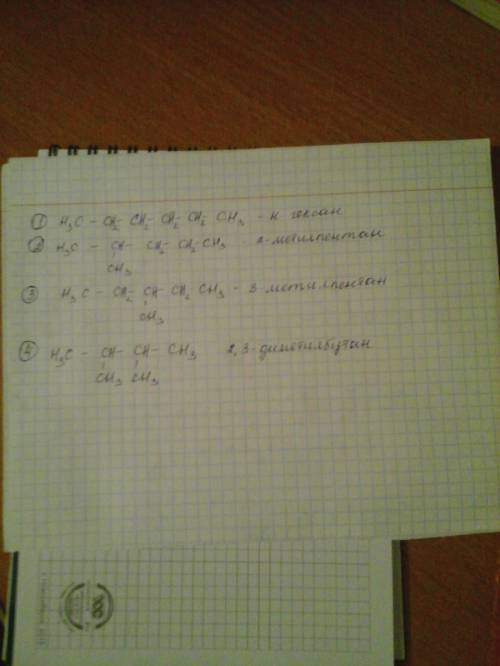 ① H₃C - CH₂ - CH₂ - CH₂ - CH₂ - CH₃ - н гексан
② H₃C - CH - CH₂ - CH₂ - CH₃ - 2-метилпентан
CH₃
③ H₃C - CH₂ - CH - CH₂ - CH₃ - 3-метилпентан
CH₃
④ H₃C - CH - CH - CH₃ 2,3-диметилбутан
CH₃ CH₃